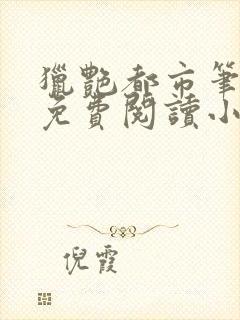 獵艷都市筆
免費閱讀小
倪霞